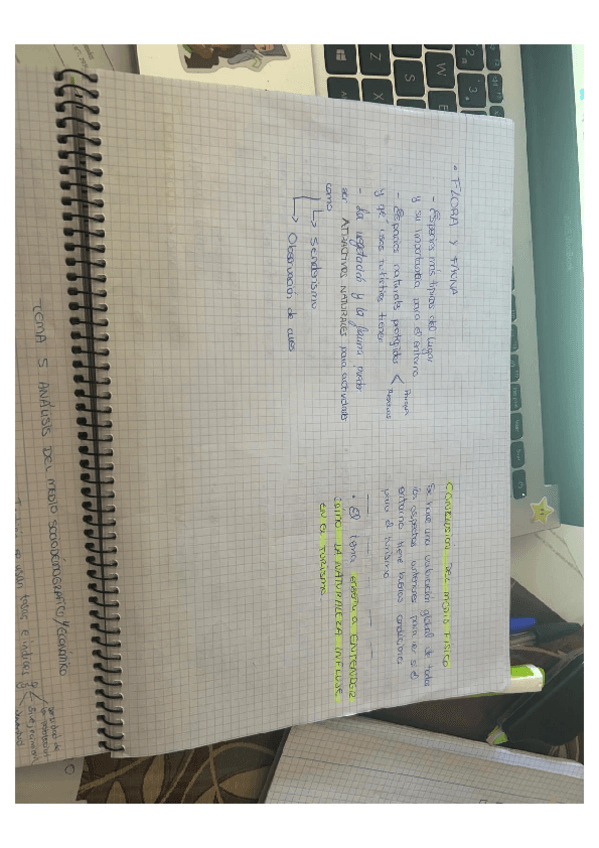 • FLORA Y FAUNA
- Especies más típicas del lugar
y su importancia para el entorno
- Espacios naturales protegidos <
y qué usos turísticos tienen
- La vegetación y la fauna pueden
ser ATRACTIVOS NATURALES para actividades
como
↳ Senderismo
↳ Observación de aves
CONCLUSIÓN DEL MEDIO FÍSICO
Se hace una valoración global de todos
los aspectos anteriores para ver si el
entorno tiene buenas condiciones
para el turismo
• El tema enseña a ENTENDER
CÓMO LA NATURALEZA INFLUYE
EN EL TURISMO
TEMA 5 ANÁLISIS DEL MEDIO SOCIODEMOGRÁFICO Y ECONÓMICO